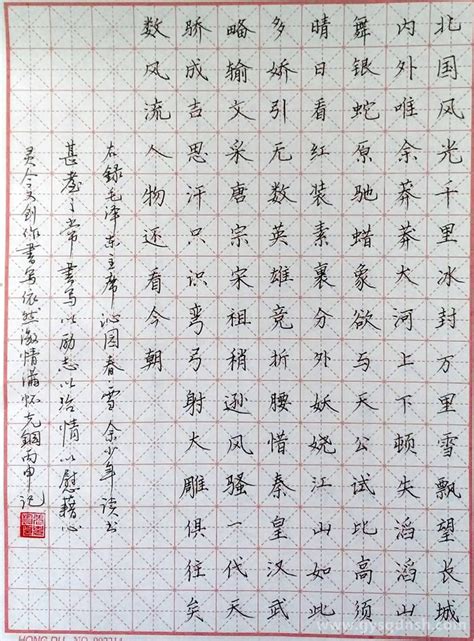 北国风光千里冰封万里雪飘望长城
内外唯余莽莽大河上下顿失滔滔山
舞银蛇原驰蜡象欲与天公试比高须
晴日看红装素裹分外妖娆江山如此
多娇引无数英雄竞折腰惜秦皇汉武
略输文采唐宗宋祖稍逊风骚一代天
骄成吉思汗只识弯弓射大雕俱往矣
数风流人物还看今朝
右録毛泽东主席沁园春雪余少年读书
甚之常書写以励志以冶情以慰藉心
灵今又创作書写依然激情满怀克鋼丙申记